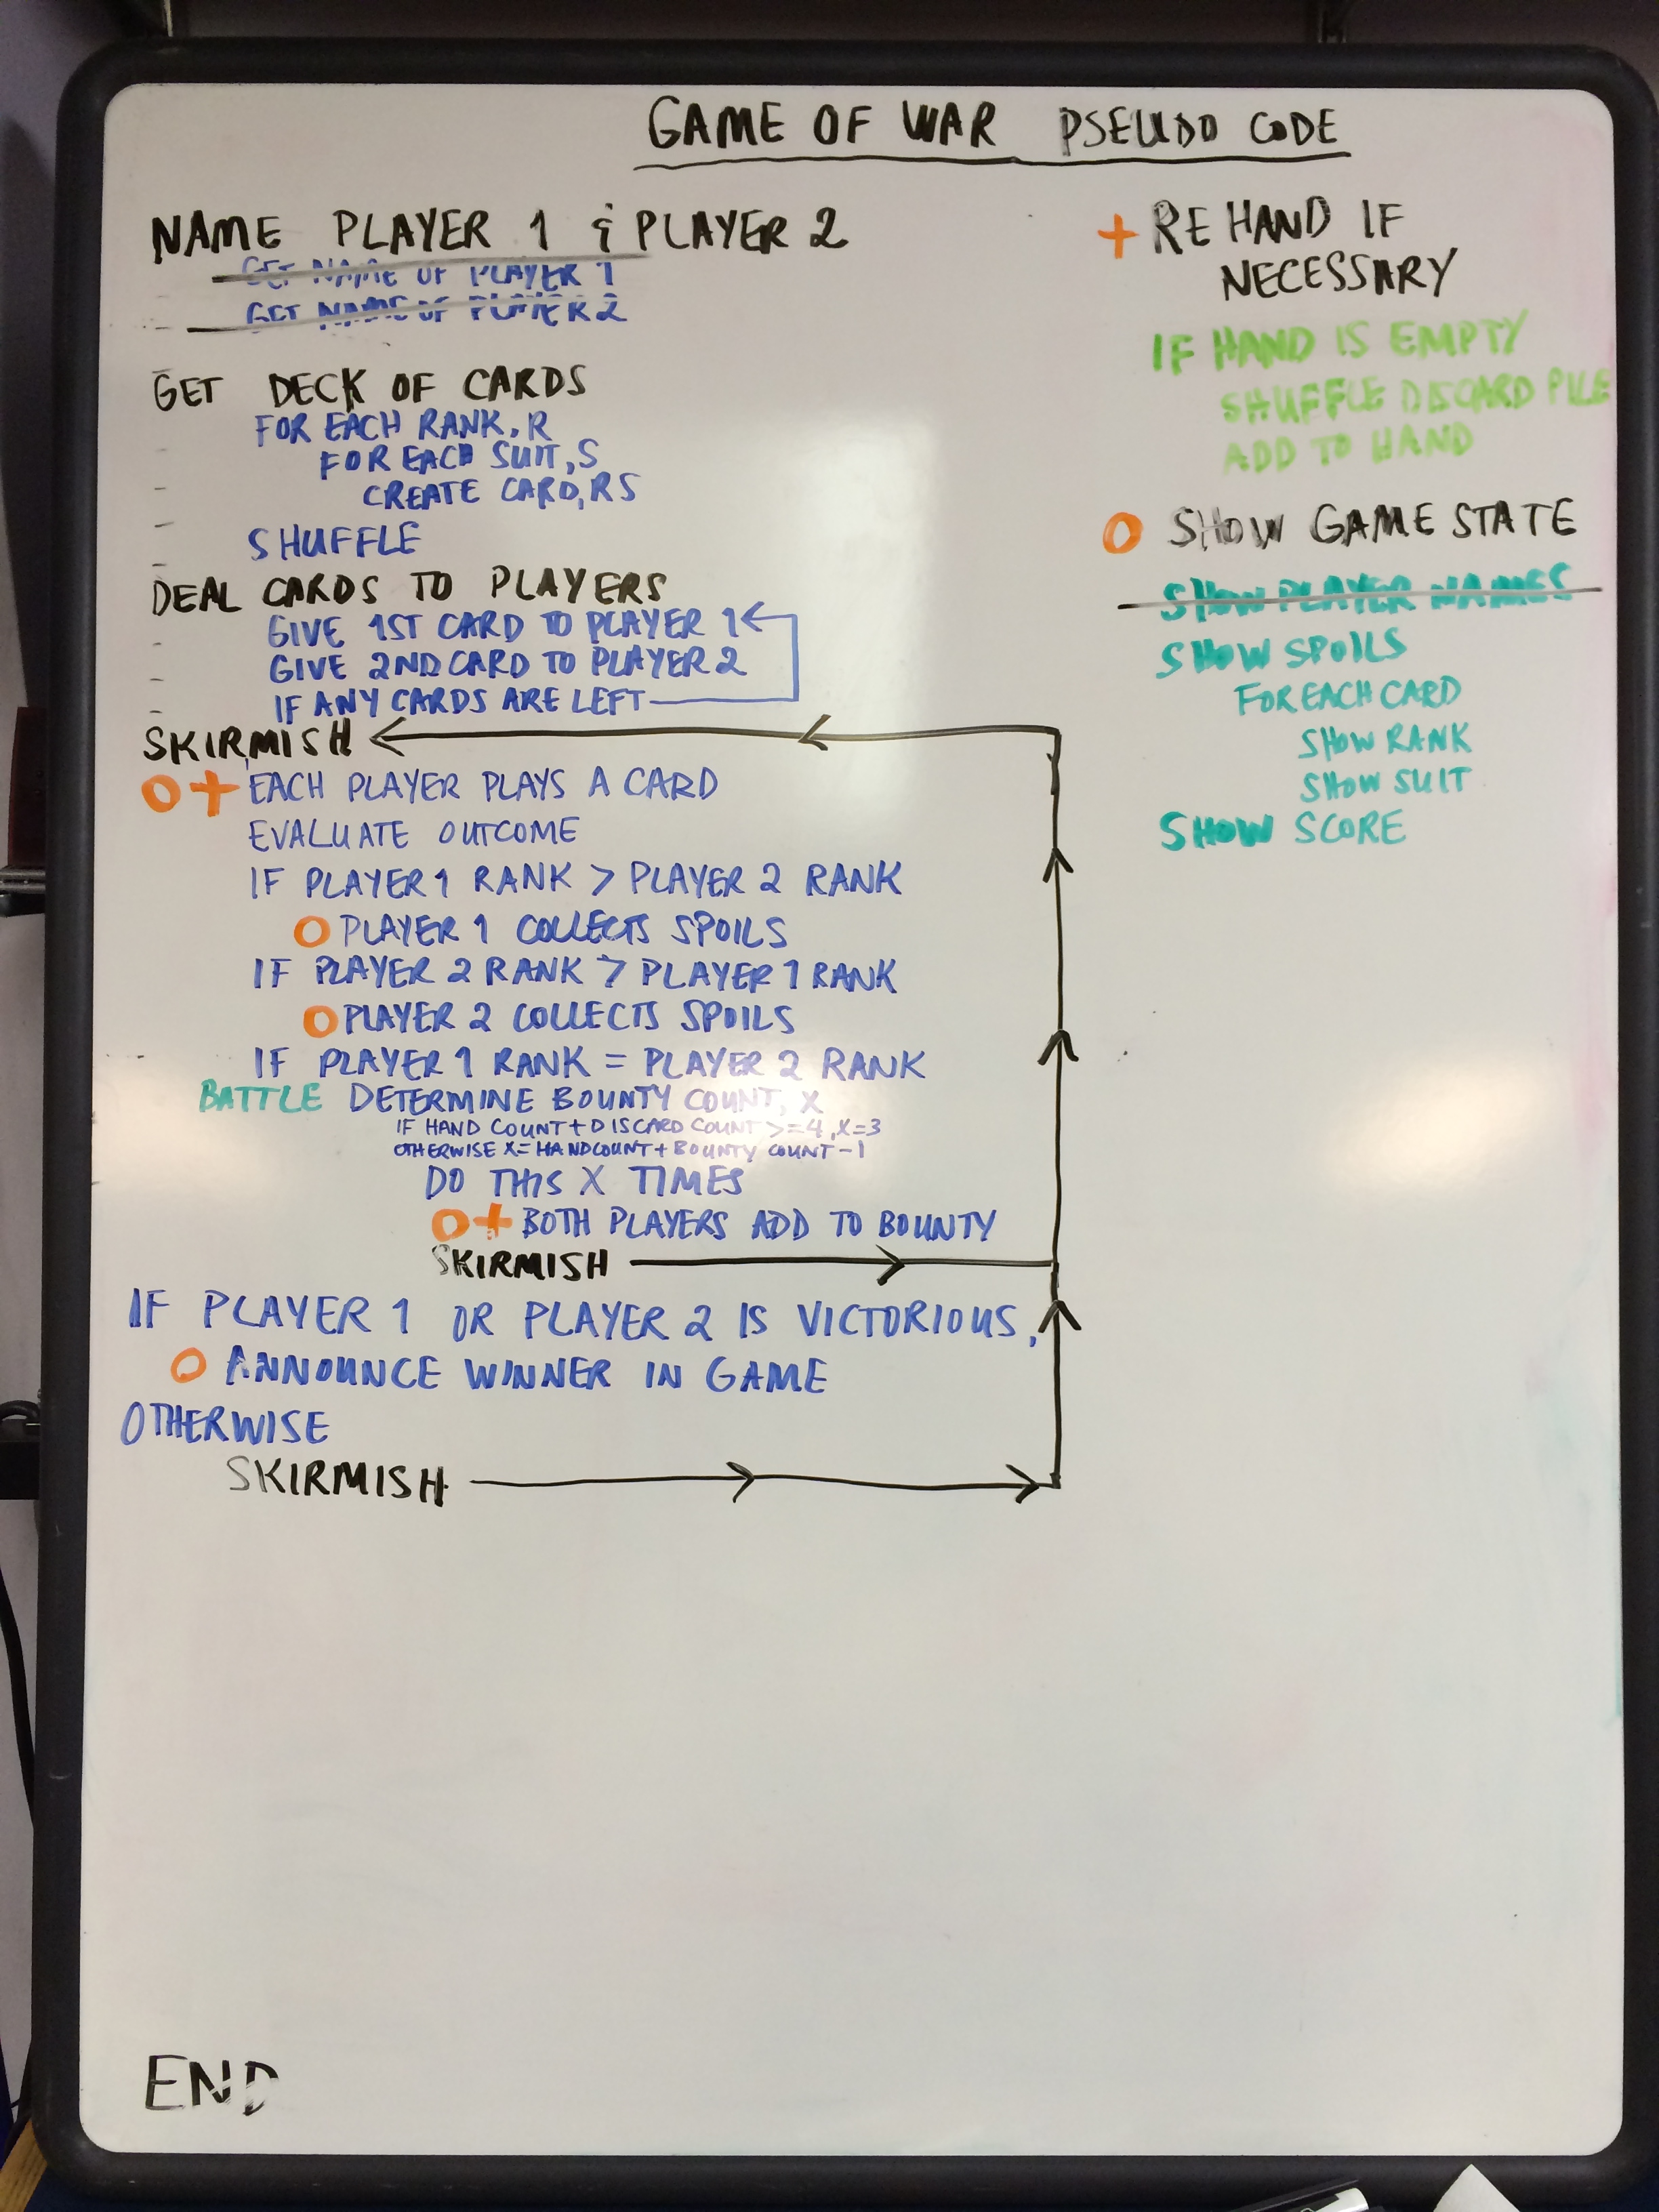 GAME OF WAR PSEUDO CODE
NAME PLAYER 1 & PLAYER 2
GET NAME OF PLAYER 1
GET NAME OF PLAYER 2
GET DECK OF CARDS
FOR EACH RANK, R
FOR EACH SUIT, S
CREATE CARD, RS
SHUFFLE
DEAL CARDS TO PLAYERS
GIVE 1ST CARD TO PLAYER 1
GIVE 2ND CARD TO PLAYER 2
IF ANY CARDS ARE LEFT
SKIRMISH
O + EACH PLAYER PLAYS A CARD
EVALUATE OUTCOME
IF PLAYER 1 RANK > PLAYER 2 RANK
O PLAYER 1 COLLECTS SPOILS
IF PLAYER 2 RANK > PLAYER 1 RANK
O PLAYER 2 COLLECTS SPOILS
IF PLAYER 1 RANK = PLAYER 2 RANK
BATTLE DETERMINE BOUNTY COUNT, X
IF HAND COUNT + DISCARD COUNT >= 4, X=3
OTHERWISE X= HANDCOUNT + BOUNTY COUNT -1
DO THIS X TIMES
O + BOTH PLAYERS ADD TO BOUNTY
SKIRMISH
IF PLAYER 1 OR PLAYER 2 IS VICTORIOUS,
O ANNOUNCE WINNER IN GAME
OTHERWISE
SKIRMISH
END
+ RE HAND IF
NECESSARY
IF HAND IS EMPTY
SHUFFLE DISCARD PILE
ADD TO HAND
O SHOW GAME STATE
SHOW PLAYER NAMES
SHOW SPOILS
FOR EACH CARD
SHOW RANK
SHOW SUIT
SHOW SCORE